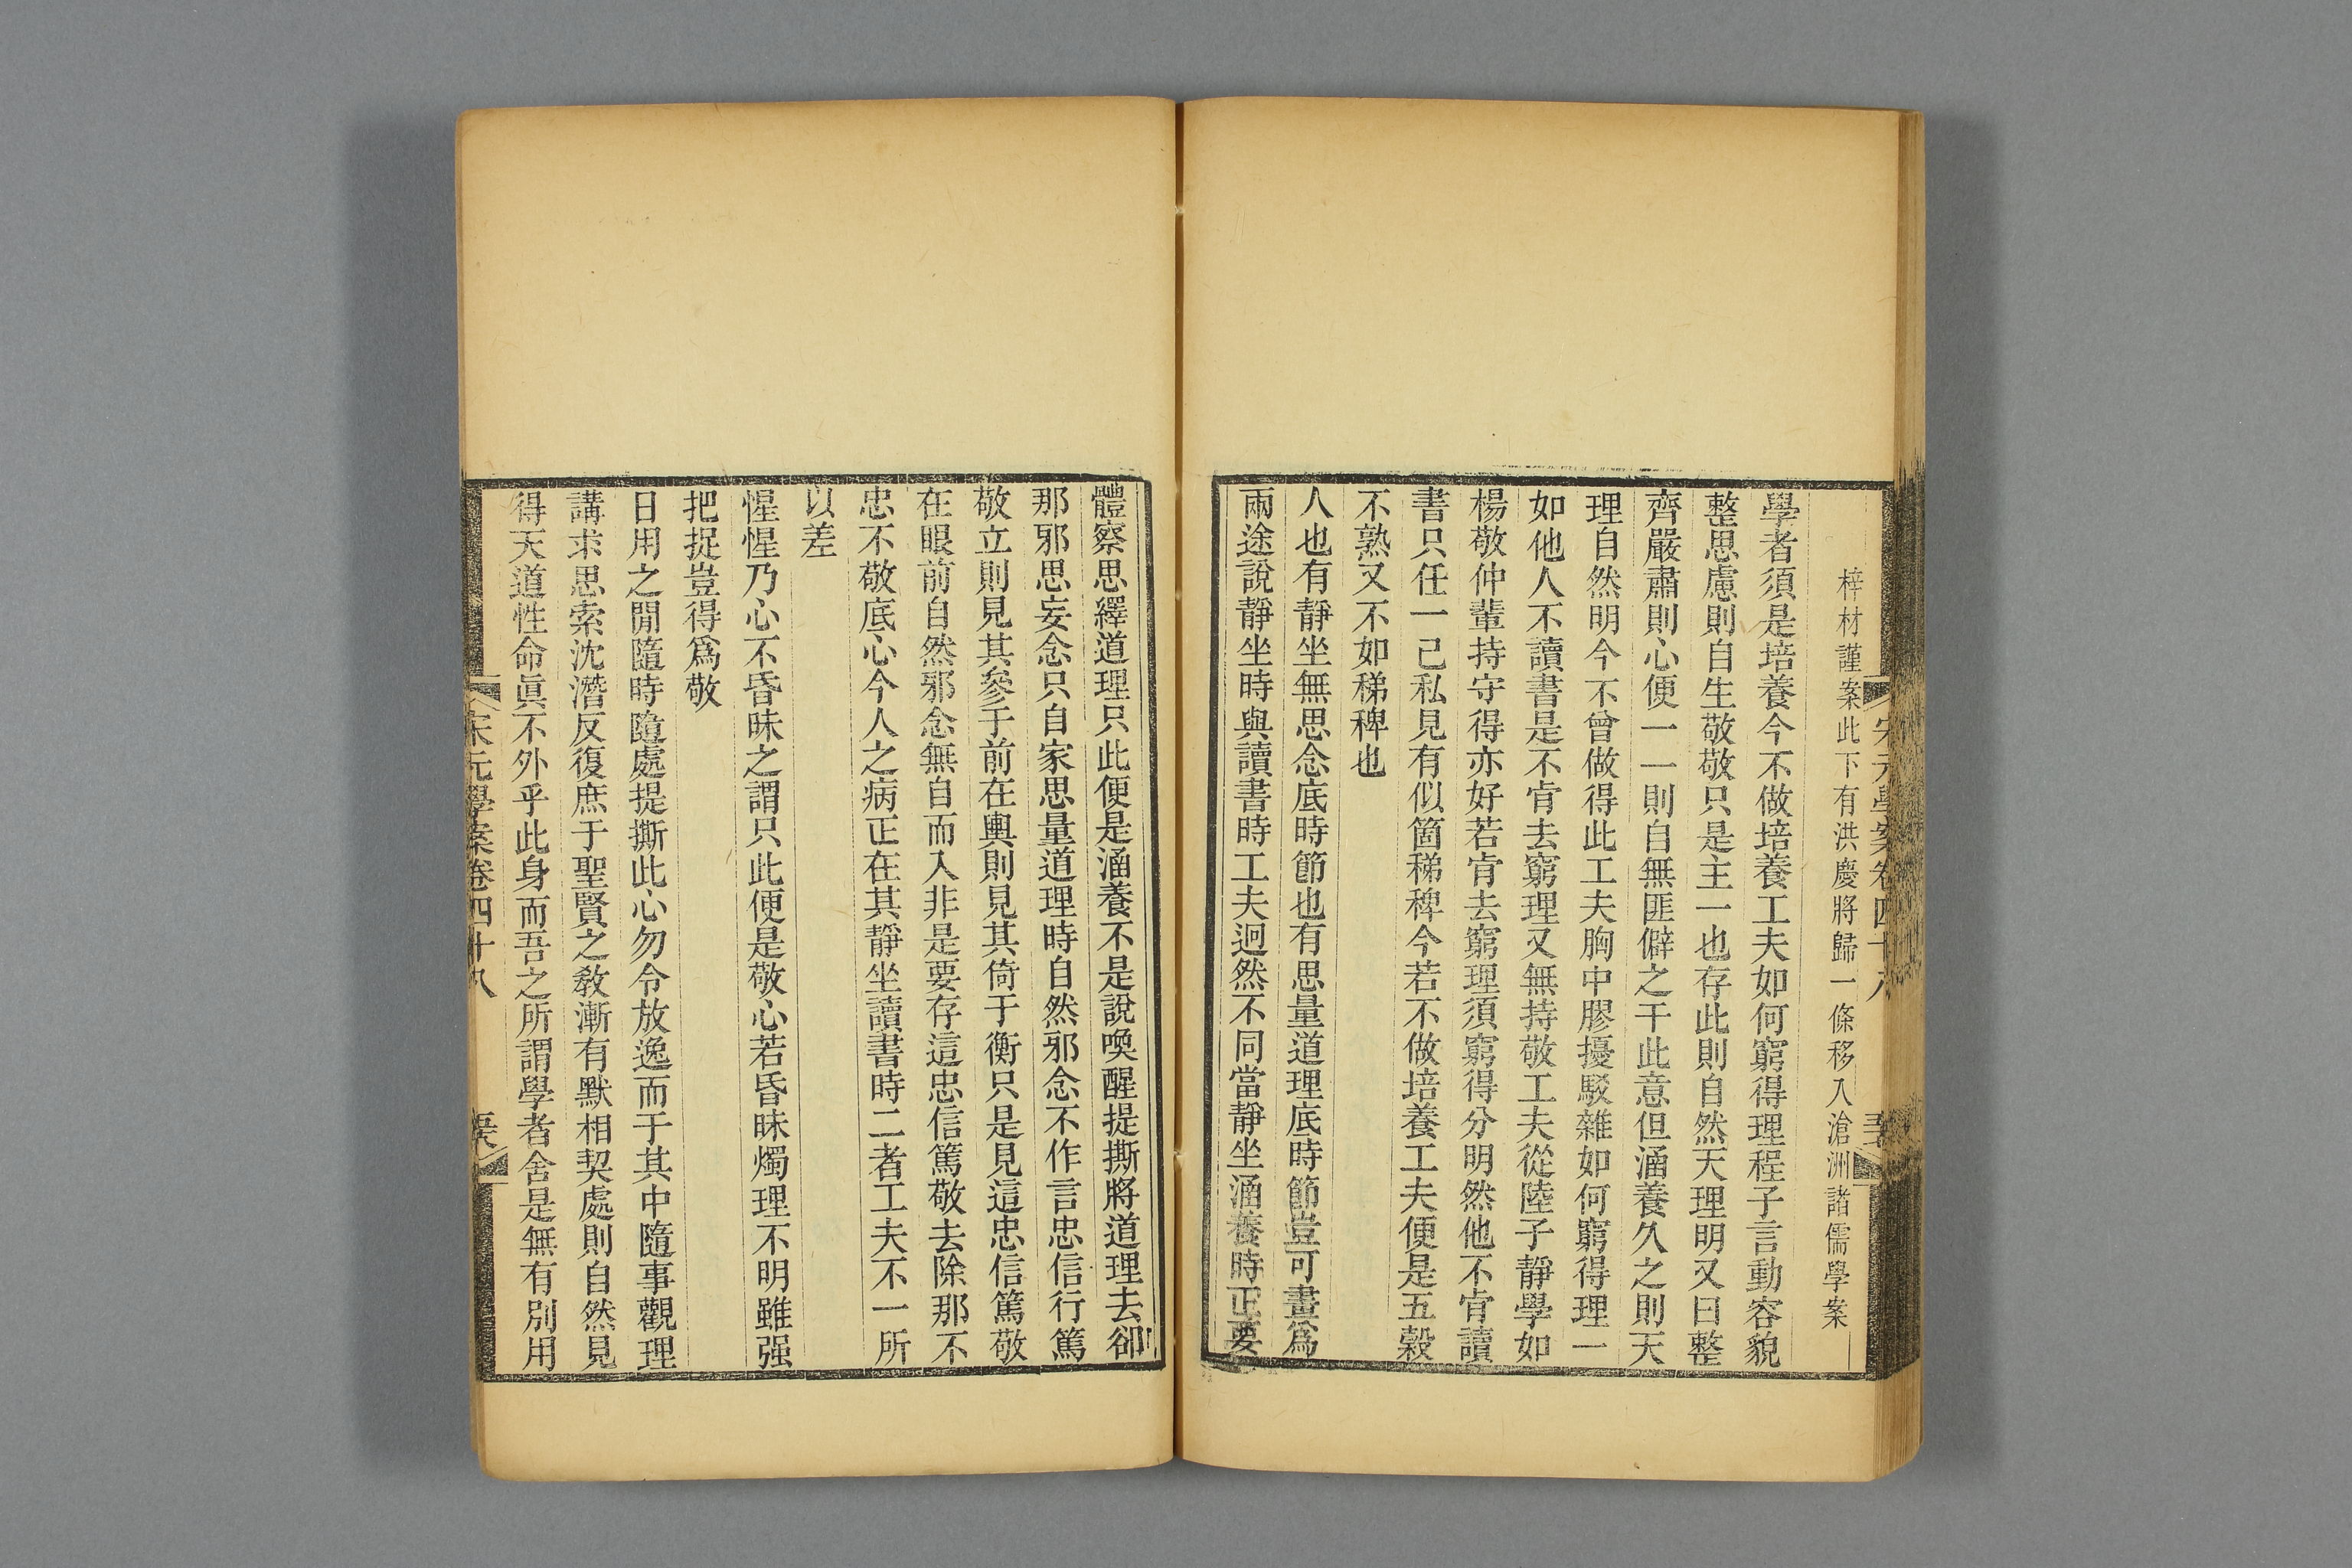 梓材謹案此下有洪慶將歸一條移入滄洲諸儒學案
學者須是培養今不做培養工夫如何窮得理程子言動容貌
整思慮則自生敬敬只是主一也存此則自然天理明又曰整
齊嚴肅則心便一一則自無匪僻之干此意但涵養久之則天
理自然明今不曾做得此工夫胸中膠擾駁雜如何窮得理一
如他人不讀書是不肯去窮理又無持敬工夫從陸子靜學如
楊敬仲輩持守得亦好若肯去窮理須窮得分明然他不肯讀
書只任一己私見有似箇稊稗今若不做培養工夫便是五穀
不熟又不如稊稗也
人也有靜坐無思念底時節也有思量道理底時節豈可畫爲
兩途說靜坐時與讀書時工夫迥然不同當靜坐涵養時正要
體察思繹道理只此便是涵養不是說喚醒提撕將道理去卻
那邪思妄念只自家思量道理時自然邪念不作言忠信行篤
敬立則見其參于前在輿則見其倚于衡只是見這忠信篤敬
在眼前自然邪念無自而入非是要存這忠信篤敬去除那不
忠不敬底心今人之病正在其靜坐讀書時二者工夫不一所
以差
惺惺乃心不昏昧之謂只此便是敬心若昏昧燭理不明雖强
把捉豈得爲敬
日用之閒隨時隨處提撕此心勿令放逸而于其中隨事觀理
講求思索沈潛反復庶于聖賢之敎漸有默相契處則自然見
得天道性命眞不外乎此身而吾之所謂學者舍是無有別用
宋元學案卷四十八